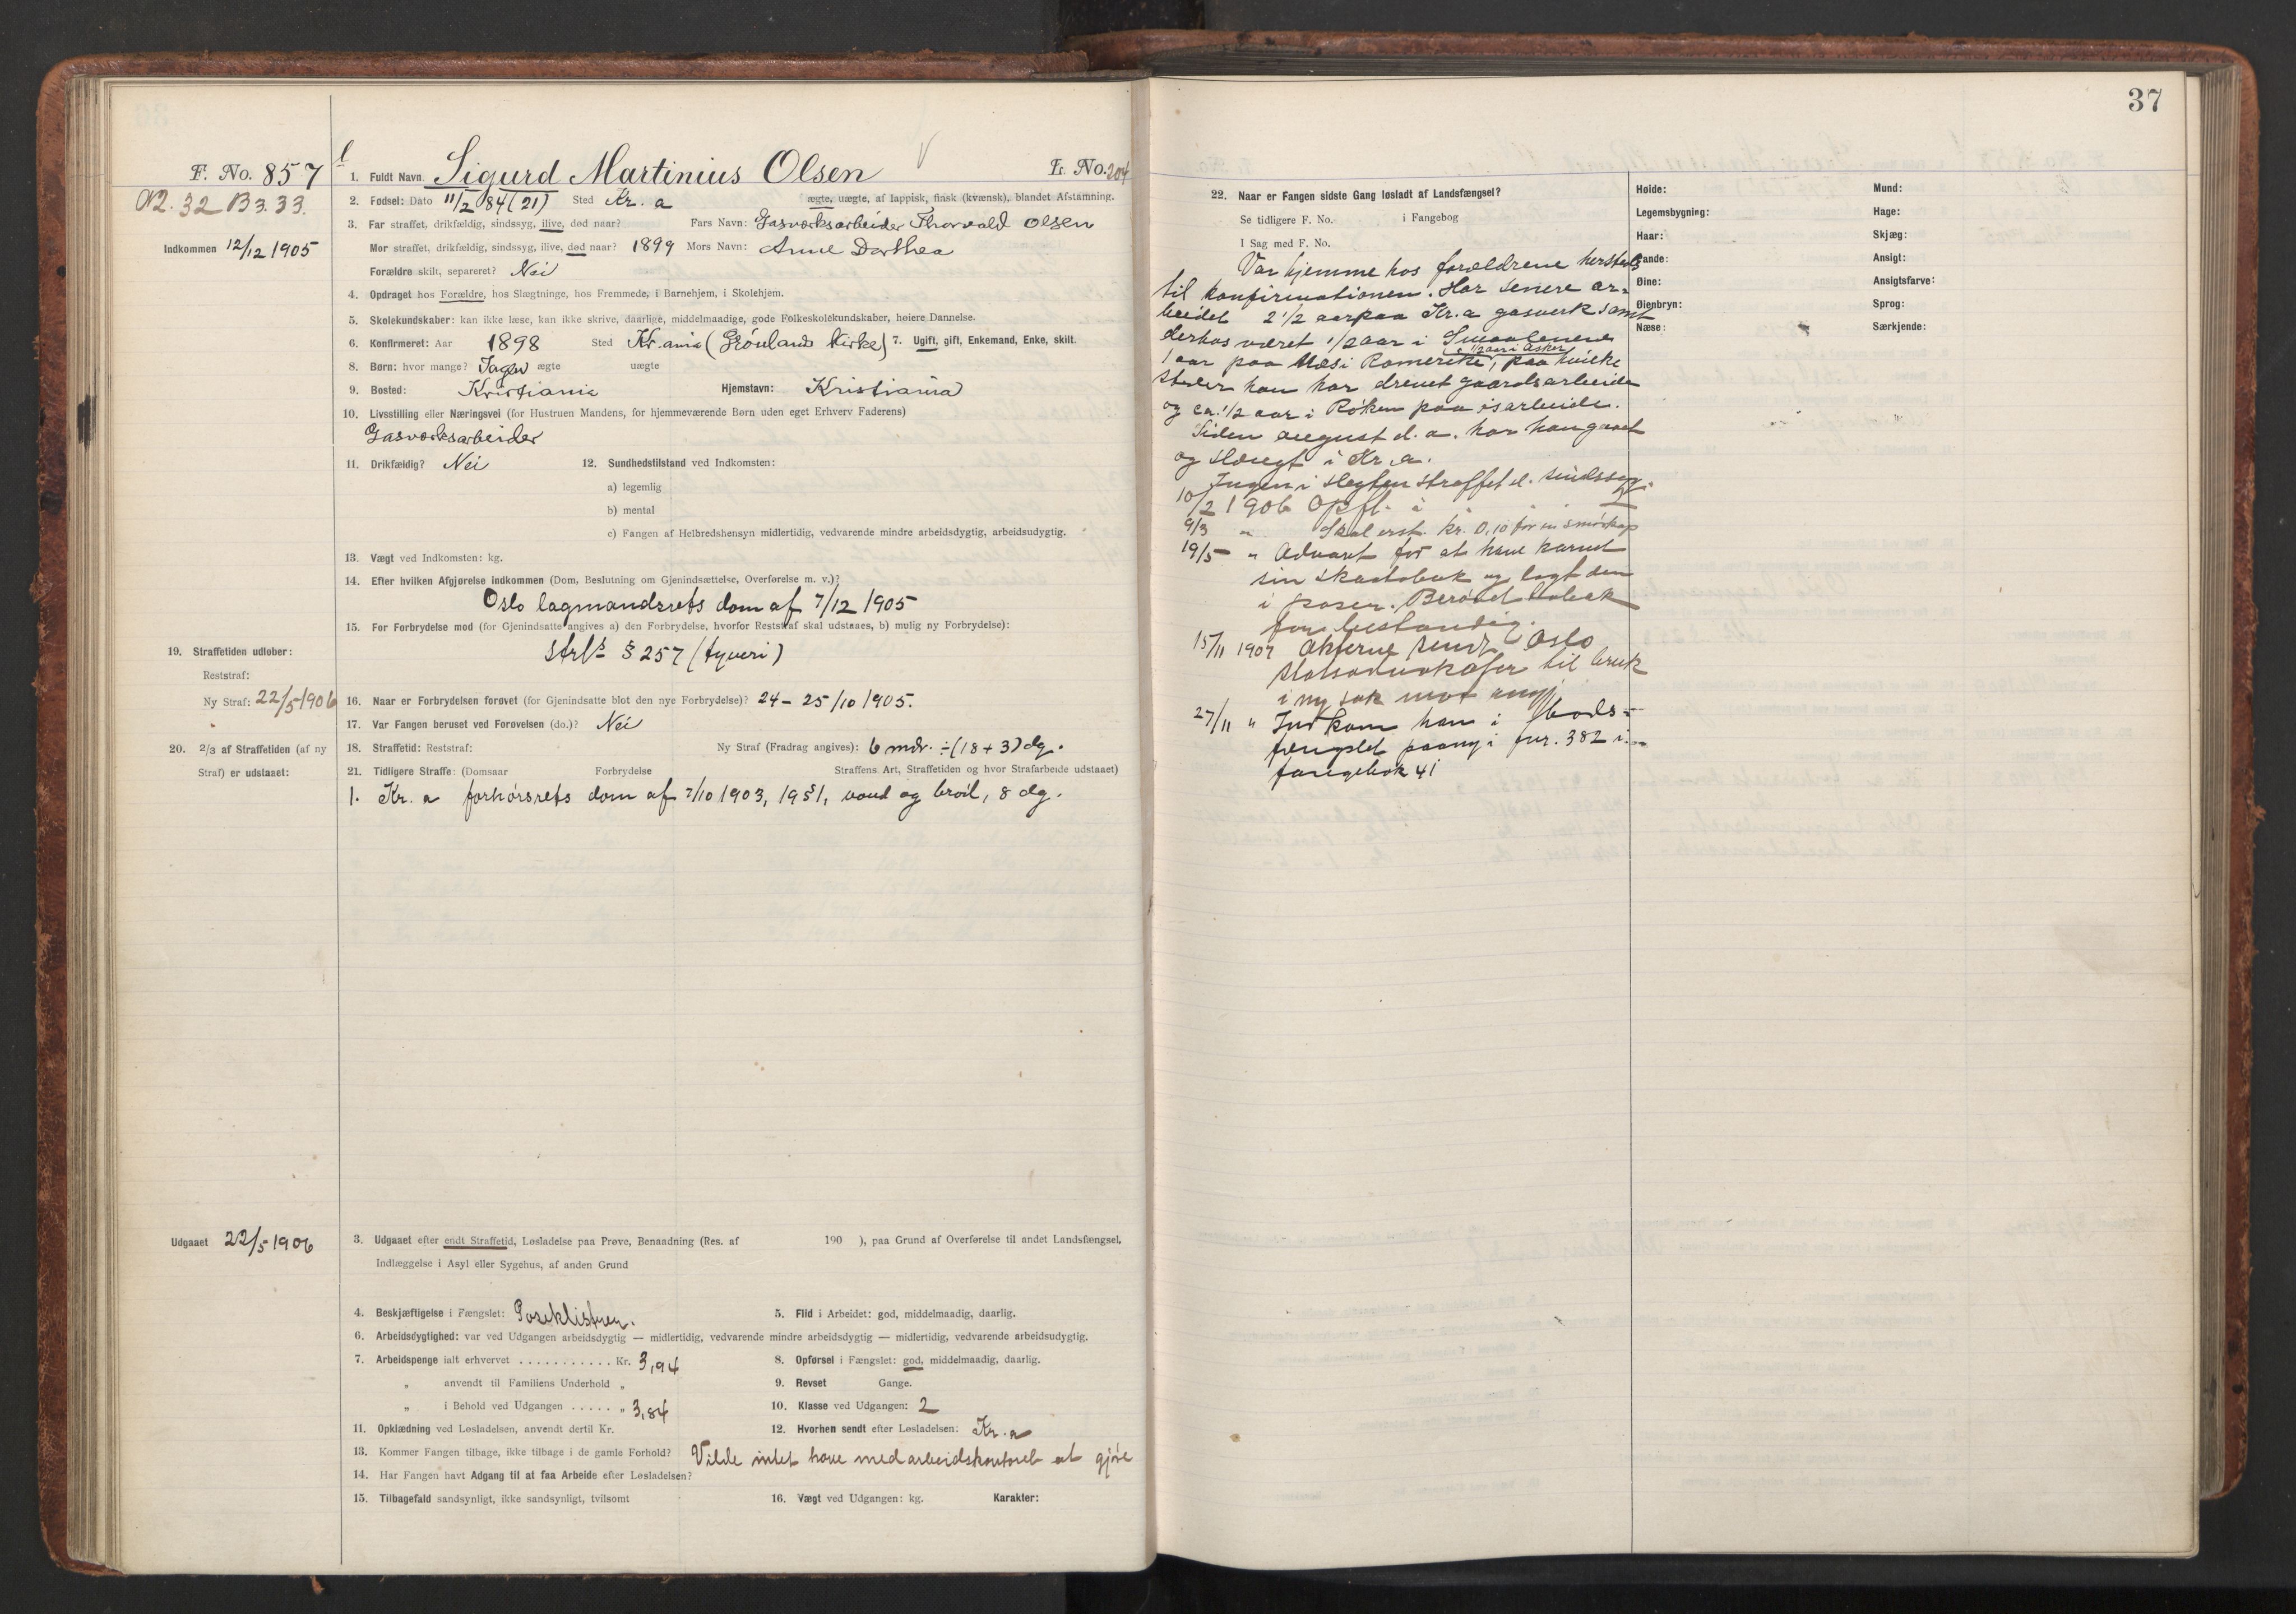 37
F. No. 857
1. Fuldt Navn Sigurd Martinius Olsen L. No. 204
32 B 3. 33.
2. Fødsel: Dato 11/2 84 (21) Sted Kr.a ægte, uægte, af lappisk, finsk (kvænsk), blandet Afstamning.
3. Far straffet, drikfældig, sindssyg, ilive, død naar? Fars Navn: Gasværksarbeider Thorvald Olsen
Indkommen 12/12 1905
Mor straffet, drikfældig, sindssyg, ilive, død naar? 1899 Mors Navn: Anne Dorthea
Forældre skilt, separeret? Nei
4. Opdraget hos Forældre, hos Slægtninge, hos Fremmede, i Barnehjem, i Skolehjem.
5. Skolekundskaber: kan ikke læse, kan ikke skrive, daarlige, middelmaadige, gode Folkeskolekundskaber, høiere Dannelse.
6. Konfirmeret: Aar 1898 Sted Kr.ania (Grønlands Kirke) 7. Ugift, gift, Enkemand, Enke, skilt.
8. Børn: hvor mange? Ingen ægte uægte
9. Bosted: Kristiania Hjemstavn: Kristiania
10. Livsstilling eller Næringsvei (for Hustruen Mandens, for hjemmeværende Børn uden eget Erhverv Faderens)
Gasværksarbeider
11. Drikfældig? Nei 12. Sundhedstilstand ved Indkomsten:
a) legemlig
b) mental
c) Fangen af Helbredshensyn midlertidig, vedvarende mindre arbeidsdygtig, arbeidsudygtig.
13. Vægt ved Indkomsten: kg.
14. Efter hvilken Afgjørelse indkommen (Dom, Beslutning om Gjenindsættelse, Overførelse m. v.)?
Oslo lagmandsrets dom af 7/12 1905
15. For Forbrydelse mod (for Gjenindsatte angives a) den Forbrydelse, hvorfor Reststraf skal udstaaes, b) mulig ny Forbrydelse):
strl's § 257 (tyveri)
19. Straffetiden udløber:
Reststraf:
Ny Straf: 22/5 1906
16. Naar er Forbrydelsen forøvet (for Gjenindsatte blot den nye Forbrydelse)? 24 - 25/10 1905.
17. Var Fangen beruset ved Forøvelsen (do.)? Nei
20. 2/3 af Straffetiden (af ny
Straf) er udstaaet:
18. Straffetid: Reststraf: Ny Straf (Fradrag angives): 6 mdr. ÷ (18 + 3) dg.
21. Tidligere Straffe: (Domsaar Forbrydelse Straffens Art, Straffetiden og hvor Strafarbeide udstaaet)
1. Kr.a forhørsrets dom af 7/10 1903, 19 § 1, vand og brød, 8 dg.
Udgaaet 22/5 1906
3. Udgaaet efter endt Straffetid, Løsladelse paa Prøve, Benaadning (Res. af 190 ), paa Grund af Overførelse til andet Landsfængsel,
Indlæggelse i Asyl eller Sygehus, af anden Grund
4. Beskjæftigelse i Fængslet: Poseklistren. 5. Flid i Arbeidet: god, middelmaadig, daarlig.
6. Arbeidsdygtighed: var ved Udgangen arbeidsdygtig — midlertidig, vedvarende mindre arbeidsdygtig — midlertidig, vedvarende arbeidsudygtig.
7. Arbeidspenge ialt erhvervet ........... Kr. 3,94 8. Opførsel i Fængslet: god, middelmaadig, daarlig.
„ anvendt til Familiens Underhold „ 9. Revset Gange.
„ i Behold ved Udgangen ..... „ 3,84 10. Klasse ved Udgangen: 2
11. Opklædning ved Løsladelsen, anvendt dertil Kr. 12. Hvorhen sendt efter Løsladelsen: Kr.a
13. Kommer Fangen tilbage, ikke tilbage i de gamle Forhold? Vilde intet have med arbeidskontoret at gjøre
14. Har Fangen havt Adgang til at faa Arbeide efter Løsladelsen?
15. Tilbagefald sandsynligt, ikke sandsynligt, tvilsomt 16. Vægt ved Udgangen: kg. Karakter:
22. Naar er Fangen sidste Gang løsladt af Landsfængsel?
Se tidligere F. No. i Fangebog
I Sag med F. No.
Var hjemme hos forældrene hersteds
til konfirmationen. Har senere ar-
beidet 2 1/2 aar paa Kr.a gasverk samt
derhos været 1/2 aar i Smaalenene
1/2 aar i Asker
1 aar paa Næs i Romerike, paa hvilke
steder han har drevet gaardsarbeide
og ca. 1/2 aar i Røken paa isarbeide.
Siden august d. a. har han gaaet
og slængt i Kr.a.
Ingen i slegten straffet el. sindssyg.
10/2 1906 Opfl. i
9/3 " Skal erst. kr. 0,10 for en
19/5 " Advaret for at have
sin og lagt den
i posen. Berøvet tobak
for bestandig.
15/11 1907 Akterne sendt Oslo
statsadvokater til bruk
i ny sak mot
27/11 " Indkom han i Bods-
fængslet paany i fnr. 382 i
fangebok 41
Høide:
Legemsbygning:
Haar:
Pande:
Øine:
Øienbryn:
Næse:
Mund:
Hage:
Skjæg:
Ansigt:
Ansigtsfarve:
Sprog:
Særkjende: